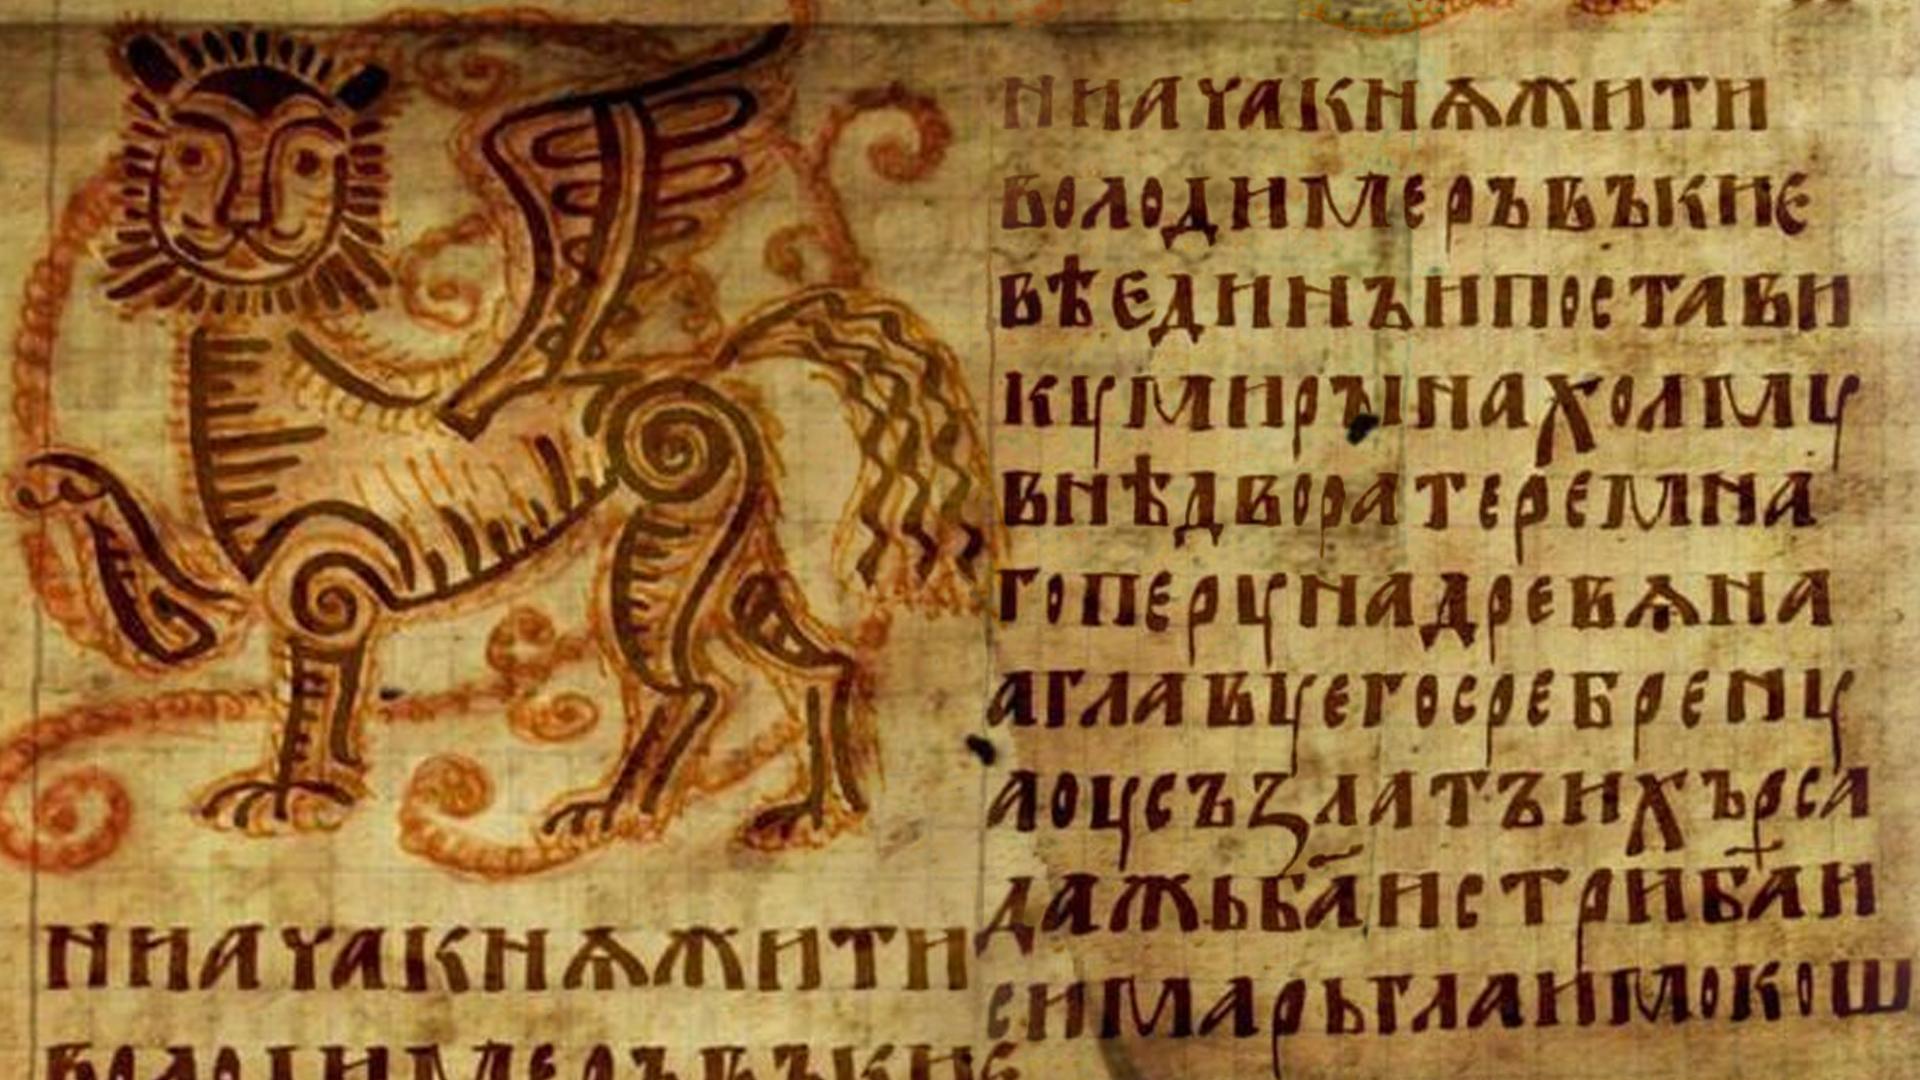 НИАЧАКНѦЖИТИ
ВОЛОДИМЕРЪВЪКИЄ
ВѢЄДИНЪИПОСТАВИ
КУМИРЪІНАХОЛМУ
ВНѢДВОРАТЕРЕМНА
ГОПЕРУНАДРЕВѦНА
АГЛАВУЕГОСРЕБРЕНУ
АОУСЪЗЛАТЪИХЪРСА
ДАЖЬБА҃ИСТРИБА҃И
СИМАРЬГЛАИМОКОШ
НИАЧАКНѦЖИТИ
ВОЛОДИМЕРЪВЪКИЄ